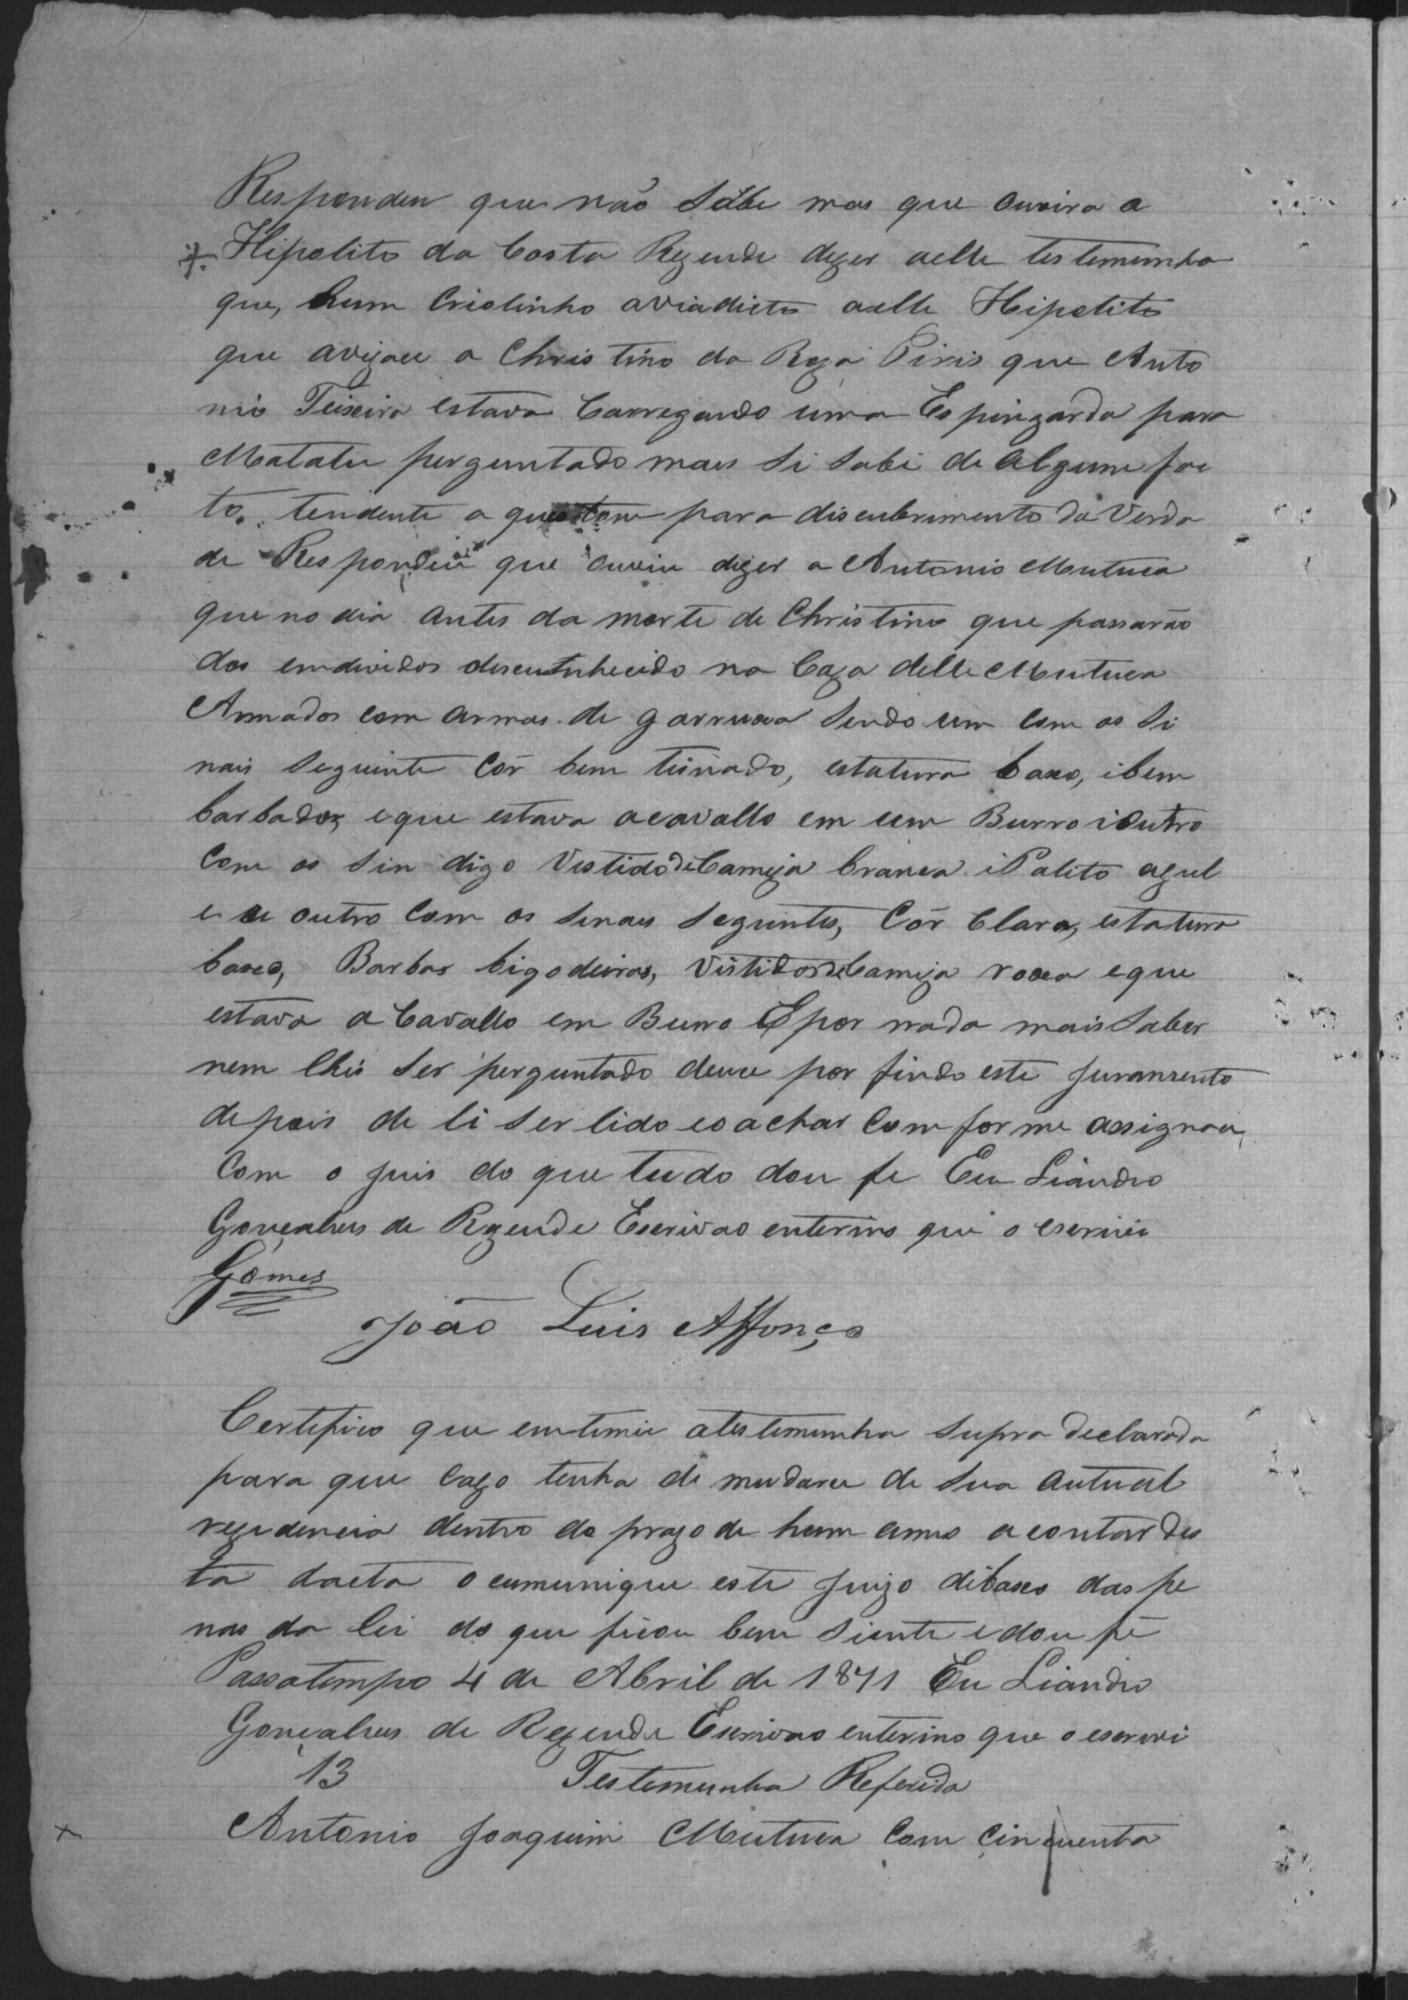 Respondeu que não Sabe mas que ouvira a
Hipolito da Costa Rezende dizer aelle testemunha
que, hum Criolinho avia dicto aelle Hipolito
que avizace a Christino da Roza Piris que Anto
nio Teixeira estava Carregando uma Espingarda para
Matalu perguntado mais Si Sabi de algum fac
to. tendente a questam para discubrimento da Verda
de Respondeu que ouviu dizer a Antonio Mutuca
que no dia antes da morte de Christino que passarão
dos endividos descunhecido na Caza delle Mutuca
Armados com armas de garruxa Sendo um com os Si
nais Seguinte Côr bem tirnado, estatura baxo, i bem
barbados, e que estava acavallo em um Burro i Outro
Com os Sin digo Vistido de Camiza branca i Palito azul
e o outro Com os Sinais Seguintes, Côr Clara, estatura
baxo, Barbas bigodeiras, Vistidos de Camiza roxa e que
estava a Cavallo em Burro E por nada mais Saber
nem lhis Ser perguntado deuce por findo este Juramento
depois de li Ser lido e o achar Comforme assignou
Com o Juis do que tudo dou fe Eu Liandro
Gonçalves de Rezende Escrivao enterino que o escrivi
Gomes
João Luis Affonço
Certifico que entimei a testemunha Supra declarada
para que cazo tenha de mudarce de Sua autual
rezidencia dentro do prazo de hum anno a contar des
ta dacta o cumunique este Juizo dibaxo das pe
nas da lei do que ficou bem Siente e dou fé
Passatempo 4 de Abril de 1871 Eu Liandro
Gonçalves de Rezende Escrivao enterino que o escrivi
13 Testemunha Referida
Antonio Joaquim Mutuca Com cincuenta